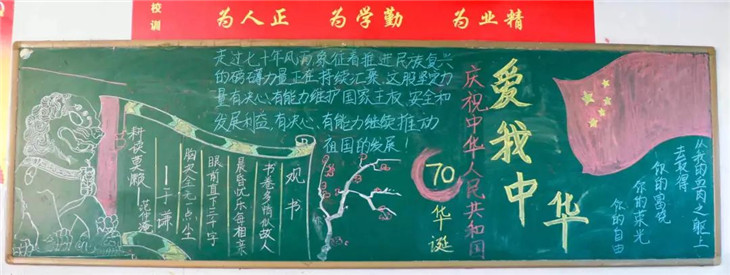 校训
为人正 为学勤 为业精
走过七十年风雨,象征着推进民族复兴
的磅礴力量正在持续汇聚,这股坚实力
量有决心、有能力维护国家主权、安全和
发展利益,有决心、有能力继续推动
祖国的发展!
爱我中华
庆祝中华人民共和国
70
华诞
观书
书卷多情似故人
晨昏忧乐每相亲
眼前直下三千字
胸次全无一点尘
——于谦
从我的五月之船上
去取得
你的富饶
你的荣光
你的自由